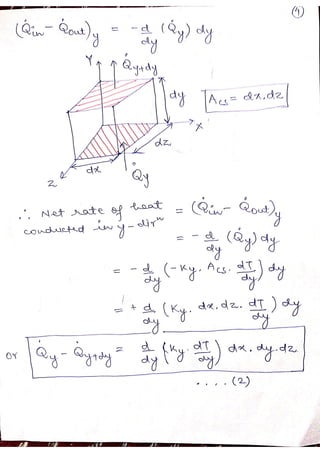 (4)
(Q̇in - Q̇out)y = - d/dy (Q̇y) dy
Y Q̇y+dy
dy
Acs = dx.dz
X
dz
dx
Z Q̇y
∴ Net rate of heat = (Q̇in - Q̇out)y
conducted in y-dirⁿ
= - d/dy (Q̇y) dy
= - d/dy (-Ky. Acs. dT/dy) dy
= + d/dy (Ky. dx.dz. dT/dy) dy
or Q̇y - Q̇y+dy = d/dy (Ky. dT/dy) dx.dy.dz
....(2)